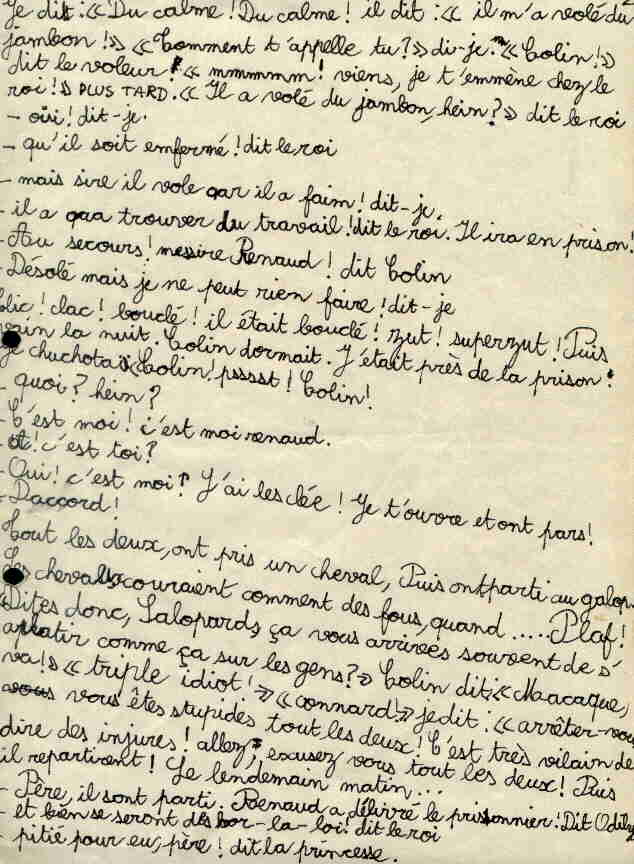 Je dit : « Du calme ! Du calme ! il dit : « il m'a volé du
jambon ! » « Comment t'appelle tu ? » di-je. « Colin ! »
dit le voleur ! « mmmmmm ! viens, je t'emmène chez le
roi ! » PLUS TARD : « Il a volé du jambon, hein ? » dit le roi
- oui ! dit-je.
- qu'il soit emfermé ! dit le roi
- mais sire il vole qar il a faim ! dit-je,
- il a qua trouver du travail ! dit le roi. Il ira en prison !
- Au secours ! messire Renaud ! dit Colin
- Désolé mais je ne peut rien faire ! dit-je
Clic ! clac ! bouclé ! il était bouclé ! zut ! superzut ! Puis
vain la nuit. Colin dormait. J'était près de la prison.
Je chuchotai « Colin ! psssst ! Colin !
- quoi ? hein ?
- C'est moi ! c'est moi renaud.
- ! c'est toi ?
- Oui ! c'est moi ? J'ai les clée ! Je t'ouvre et ont pars !
- Daccord !
Tout les deux, ont pris un cheval, Puis ont parti au galop.
Les chevaux couraient comment des fous, quand ..... Plaf !
« Dites donc, Salopards, ça vous arrivées souvent de s'
aplatir comme ça sur les gens ? » Colin dit : « Macaque,
va ! » « triple idiot ! » « connard ! » je dit : « arrêter-vous
vous êtes stupides tout les deux ! C'est très vilain de
dire des injures ! allez, excusez vous tout les deux ! Puis
il repartirent ! Le lendemain matin...
- Père, il sont parti. Renaud a délivré le prisonnier ! Dit Odily
- et bien se seront des hor-la-loi ! dit le roi
- pitié pour eu, père ! dit la princesse.